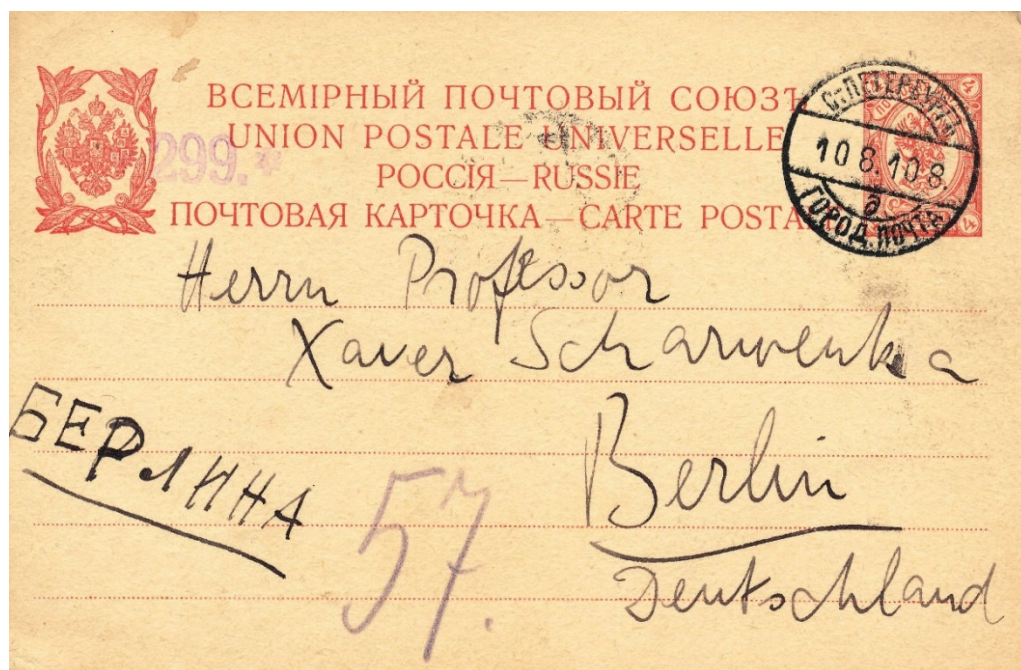 ВСЕМІРНЫЙ ПОЧТОВЫЙ СОЮЗЪ
UNION POSTALE UNIVERSELLE
299.*
РОССІЯ—RUSSIE
ПОЧТОВАЯ КАРТОЧКА—CARTE POSTA
С.-ПЕТЕРБУРГЪ
10 8.10 8.
ГОРОД. ПОЧТА
4
4
Herrn Professor
Xaver Scharwenka
БЕРЛИНА
Berlin
57.
Deutschland